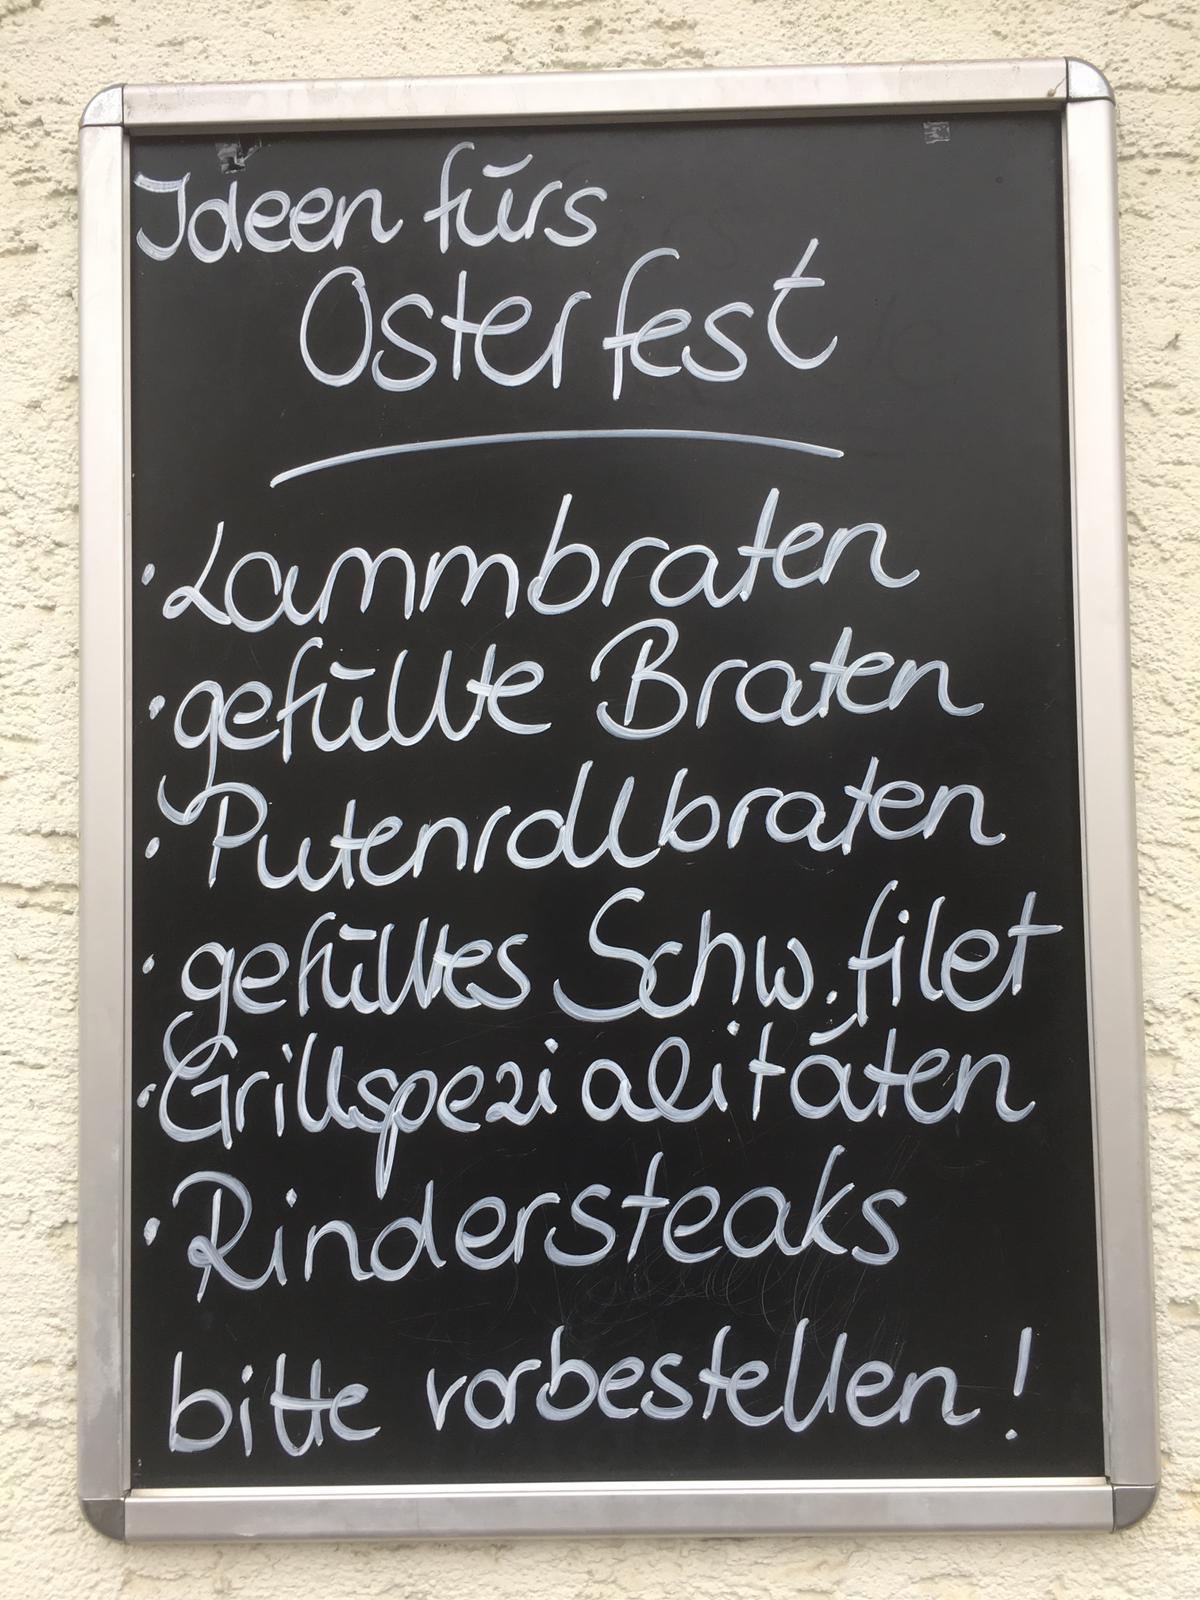 Ideen fürs
Osterfest
· Lammbraten
· gefüllte Braten
· Putenrollbraten
· gefülltes Schw. filet
· Grillspezialitäten
· Rindersteaks
bitte vorbestellen!